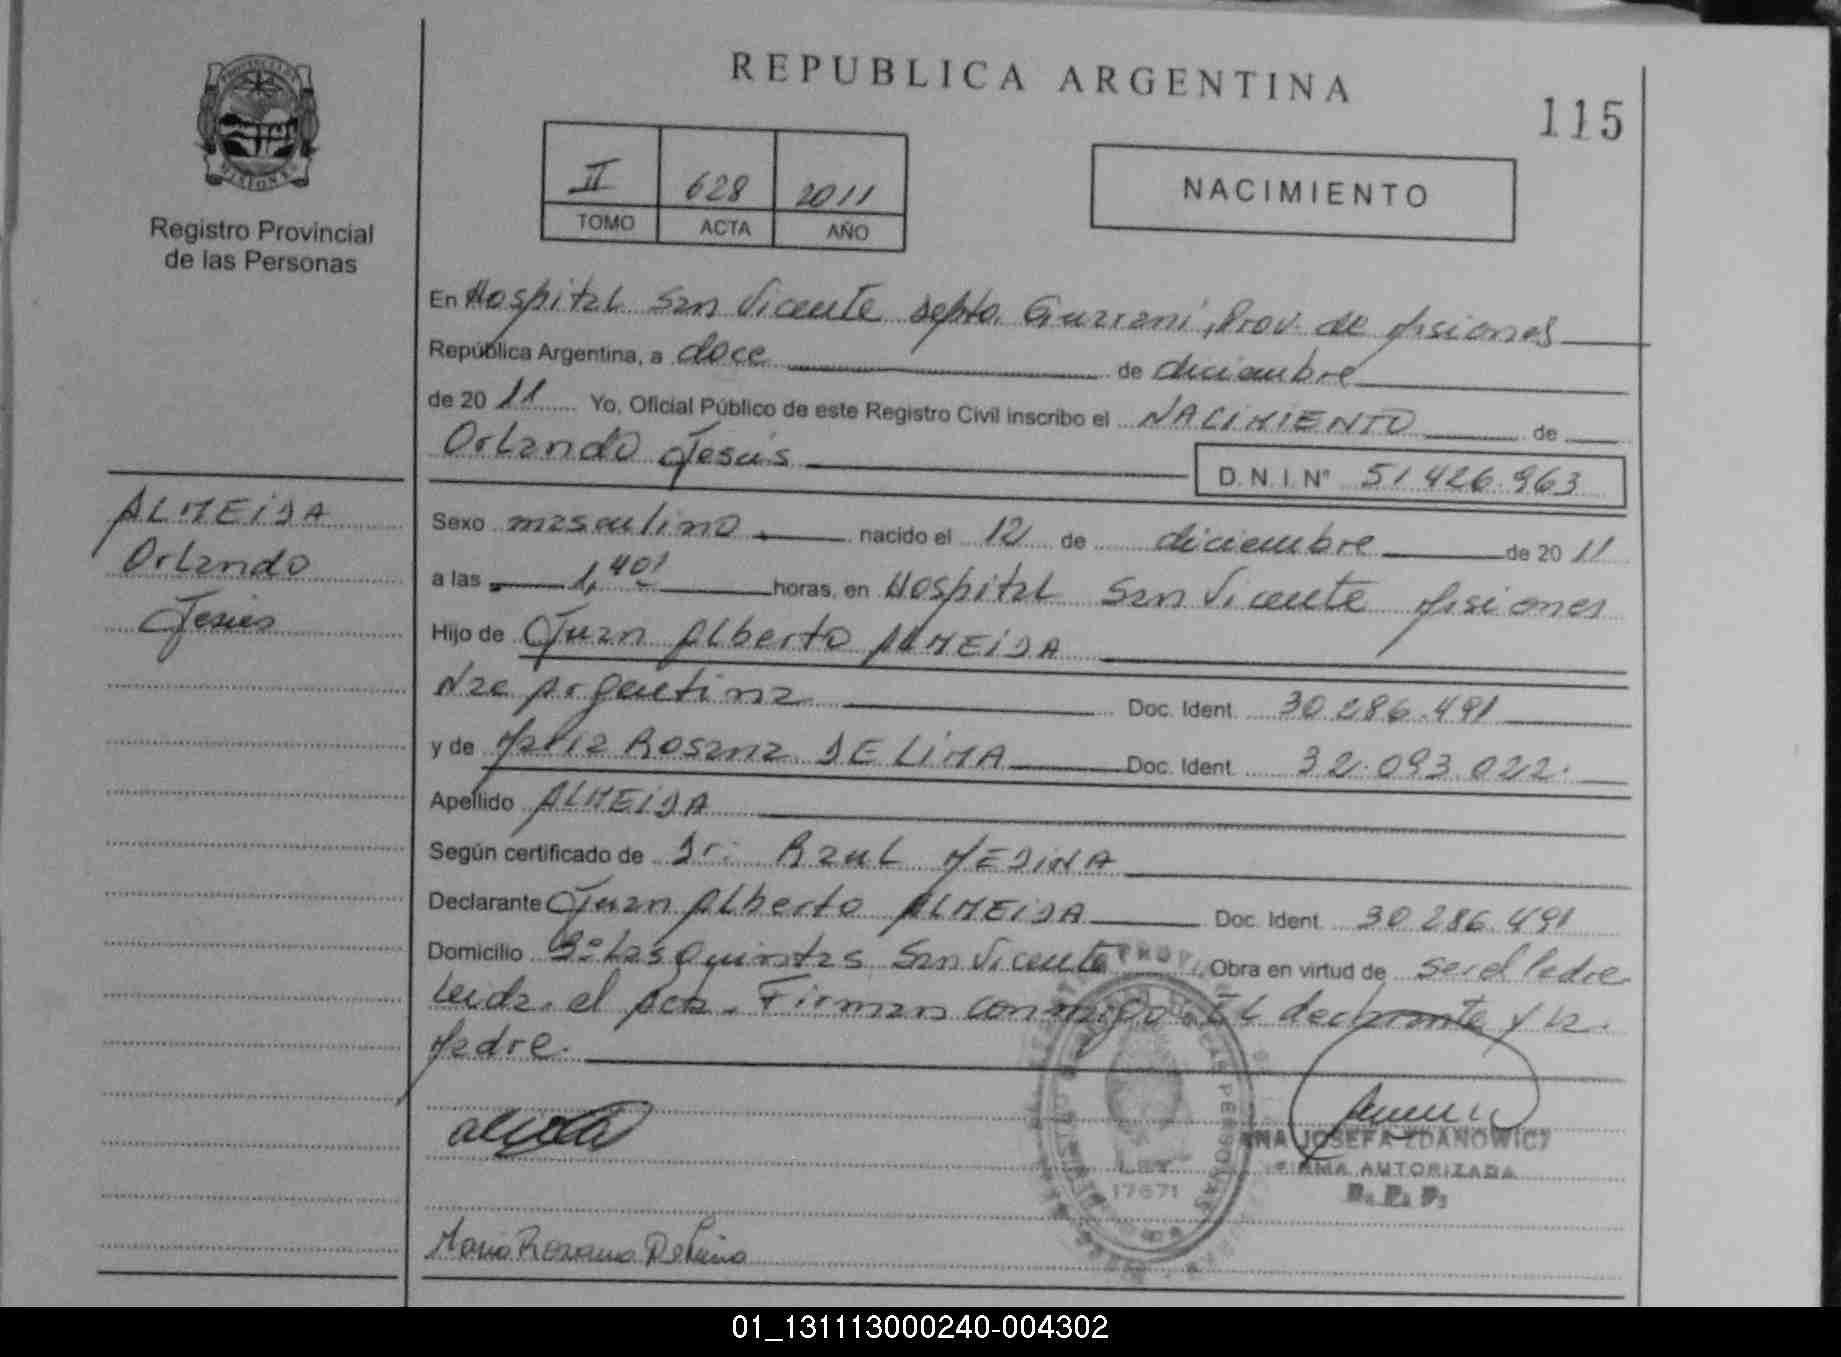 REPUBLICA ARGENTINA
115
II 628 2011
TOMO ACTA AÑO
NACIMIENTO
Registro Provincial
de las Personas
En Hospital San Vicente Depto. Guarani, Prov. de Misiones
República Argentina, a doce de diciembre
de 2011 Yo, Oficial Público de este Registro Civil inscribo el NACIMIENTO de
Orlando Jesús
D. N. I. Nº 51 426.963
ALMEIDA
Orlando
Jesús
Sexo masculino nacido el 12 de diciembre de 2011
a las 1,40' horas, en Hospital San Vicente Misiones
Hijo de Juan Alberto ALMEIDA
Nac Argentina Doc. Ident. 30.286.491
y de Maria Rosana DE LIMA Doc. Ident. 32.093.022.
Apellido ALMEIDA
Según certificado de Dr. Raul MEDINA
Declarante Juan Alberto ALMEIDA Doc. Ident. 30.286.491
Domicilio Bº Las Quintas San Vicente Obra en virtud de ser el Padre
Leida el Acta. Firman conmigo EL declarante y la
Madre.
ANA JOSEFA ZDANOWICZ
FIRMA AUTORIZADA
R. P. P.
LEY
17671
Maria Rosana De Lima
01_131113000240-004302